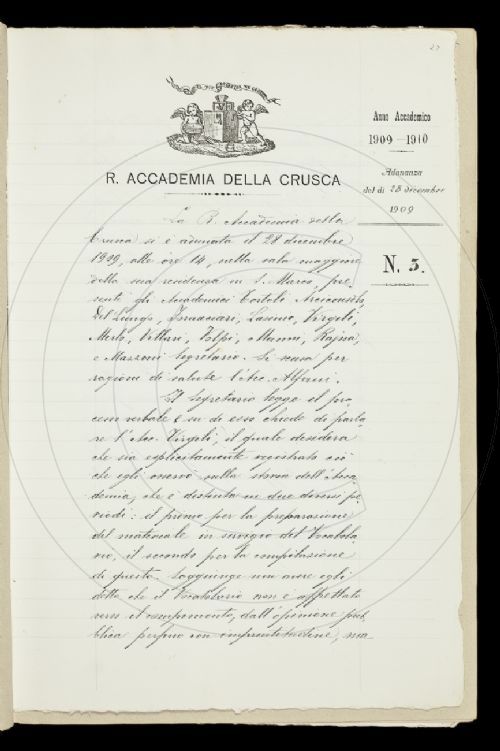 Anno Accademico
1909-1910
Adunanza
del dì 28 dicembre
1909
N. 3.
R. ACCADEMIA DELLA CRUSCA
La R. Accademia della
Crusca si è adunata il 28 dicembre
1909, alle ore 14, nella sala maggiore
della sua residenza in S. Marco, pre-
senti gli Accademici Tortoli Arciconsolo,
Del Lungo, Fornaciari, Lasinio, Virgili,
Merlo, Villari, Volpi, Manni, Rajna,
e Mazzoni Segretario. Si scusa per
ragione di salute l'Acc. Alfani.
Il Segretario legge il pro-
cesso verbale e su di esso chiede di parla-
re l'Acc. Virgili, il quale desidera
che sia esplicitamente registrato ciò
che egli osservò sulla storia dell'Acca-
demia, che è distinta in due diversi pe-
riodi: il primo per la preparazione
del materiale in servigio del Vocabola-
rio, il secondo per la compilazione
di questo. Soggiunge non avere egli
detto che il Vocabolario non è aspettato
verso il compimento, dall'opinione pub-
blica perfino con ma-